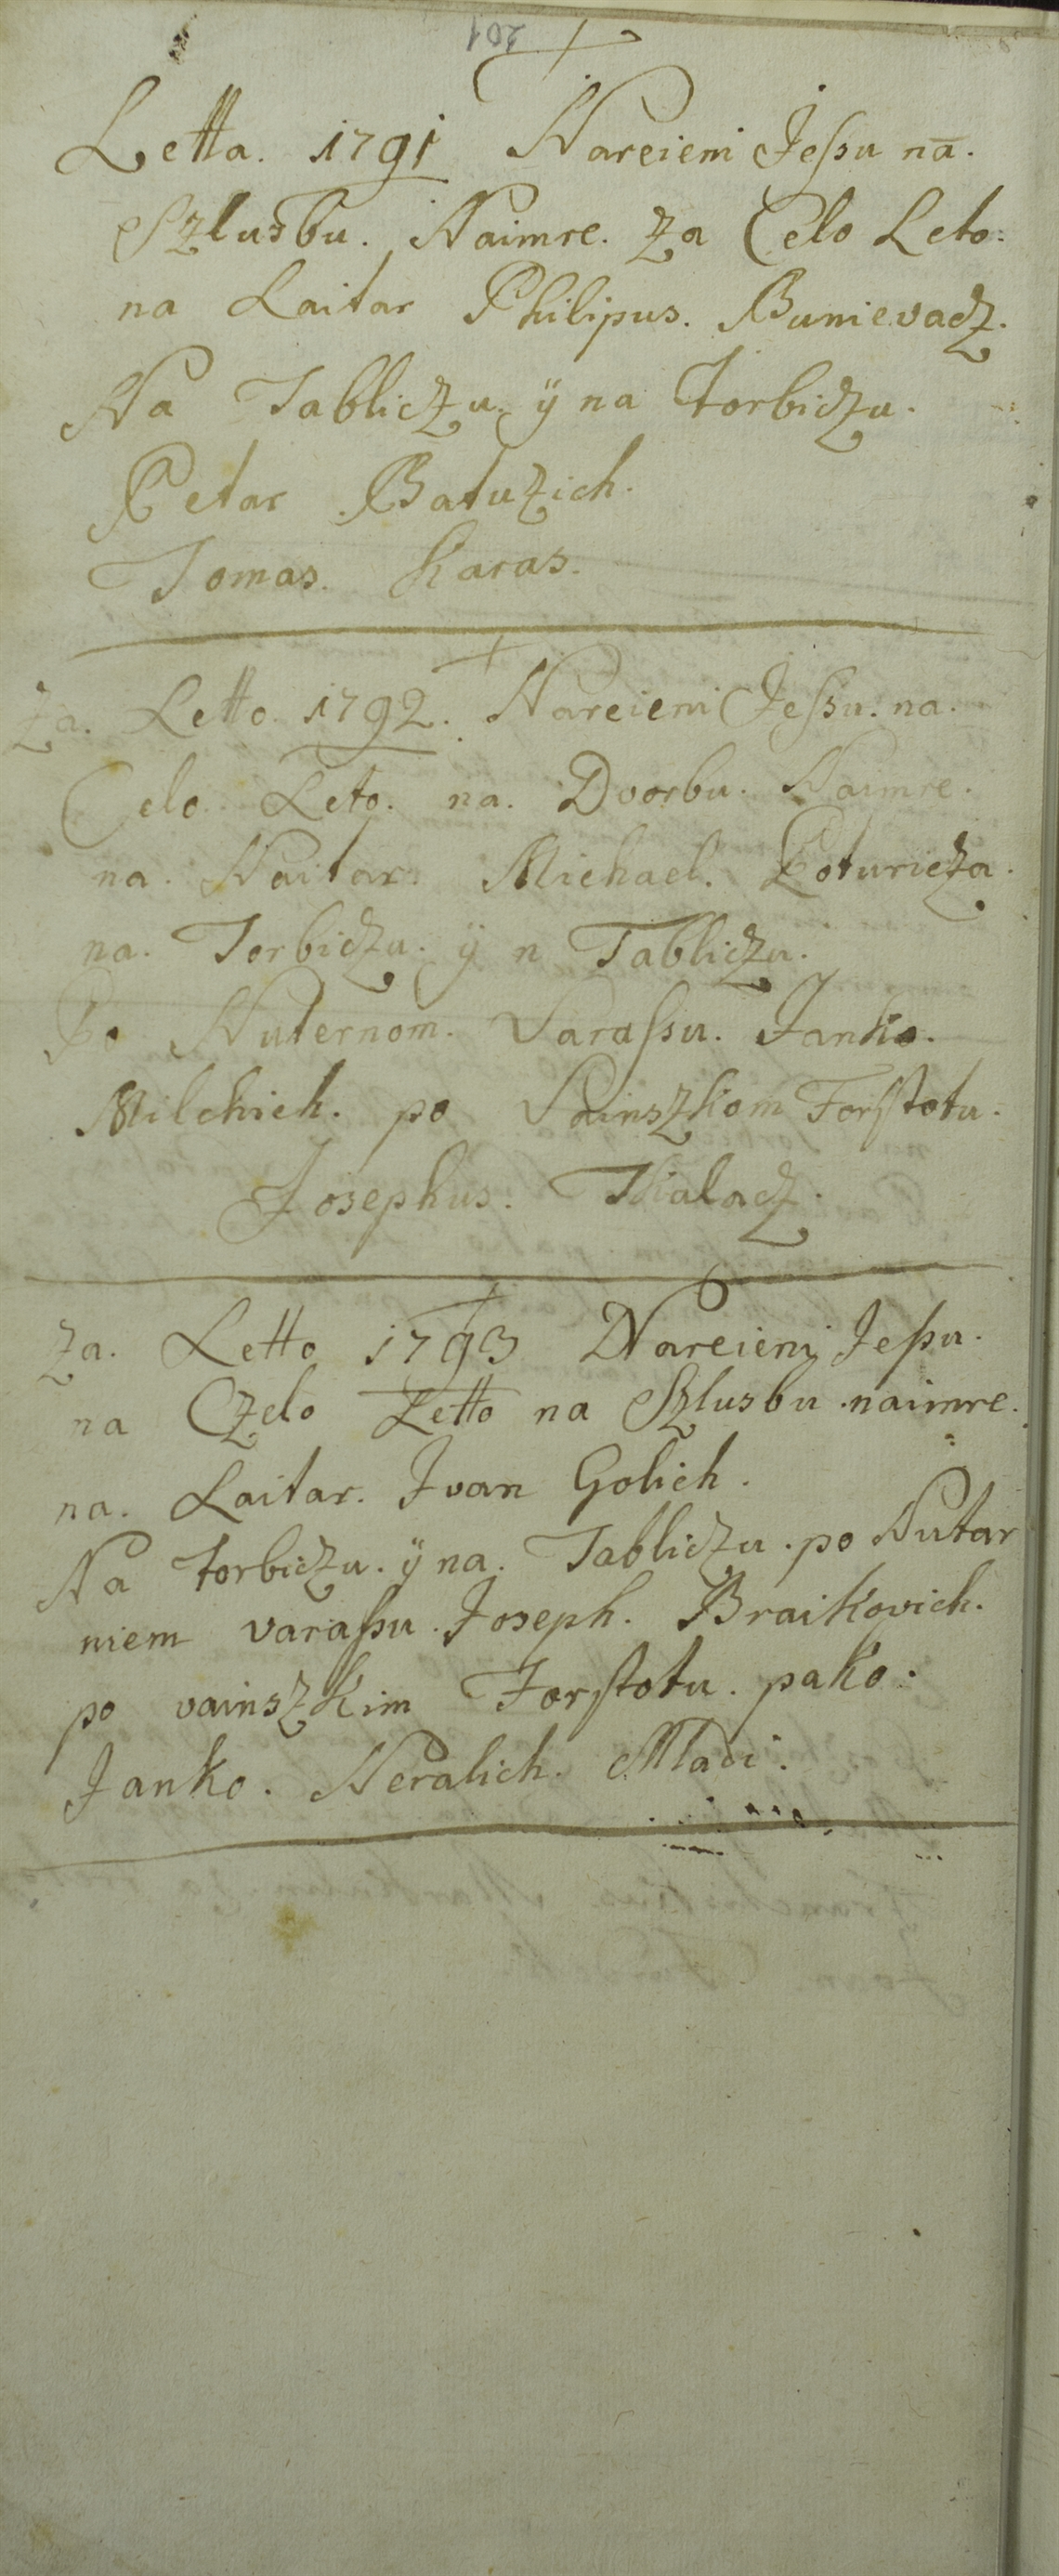 201
Letta. 1791 Nareieni Jeſsu na.
Szlusbu. Naimre. za Celo Leto:
na Laitar Philipus. Bunievacz.
Na Tabliczu. ÿ na Torbiczu.
Petar Batuzich.
Tomas. Karas.
Za. Letto. 1792. Nareieni Jeſsu. na.
Celo. Leto. na. Dvorbu. Naimre.
na. Naitar. Michael. Poturicza.
na. Torbiczu. ÿ n Tabliczu.
Po Nuternom. Varaſsu. Janko.
Milchich. po Vainszkom Forſtotu.
Josephus. Tkalacz.
Za. Letto 1793 Nareieni Jeſsu.
na Czelo Letto na Szlusbu. naimre.
na. Laitar. Ivan Golich.
Na torbiczu. ÿ na. Tabliczu. po Nutar
niem varaſsu. Joseph. Braikovich.
po vainszkim Forſtotu. pako.
Janko. Neralich. Mladi.